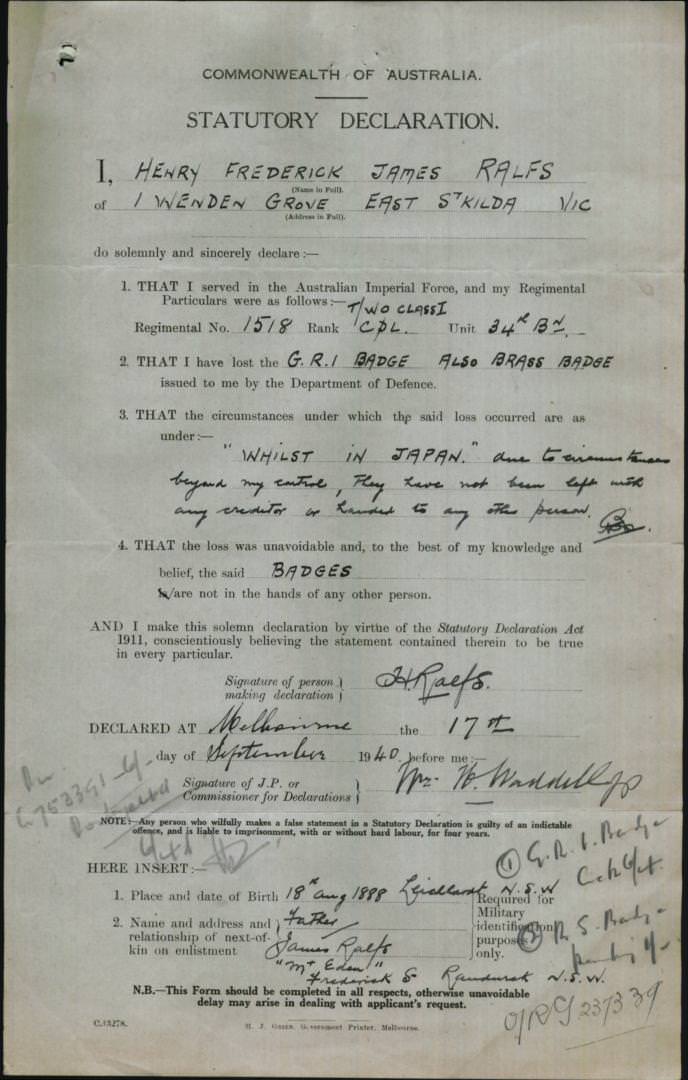 COMMONWEALTH OF AUSTRALIA.
STATUTORY DECLARATION.
I, HENRY FREDERICK JAMES RALFS
(Name in Full).
of 1 WENDEN GROVE EAST ST KILDA VIC
(Address in Full).
do solemnly and sincerely declare:—
1. THAT I served in the Australian Imperial Force, and my Regimental
Particulars were as follows:—
T/WO CLASS I
Regimental No. 1518 Rank CPL. Unit 34th Bn.
2. THAT I have lost the G.R.I BADGE ALSO BRASS BADGE
issued to me by the Department of Defence.
3. THAT the circumstances under which the said loss occurred are as
under:—
"WHILST IN JAPAN." due to circumstances
beyond my control, They have not been left with
any creditor or handed to any other person.
4. THAT the loss was unavoidable and, to the best of my knowledge and
belief, the said BADGES
is/are not in the hands of any other person.
AND I make this solemn declaration by virtue of the Statutory Declaration Act
1911, conscientiously believing the statement contained therein to be true
in every particular.
Signature of person
making declaration
H.Ralfs.
DECLARED AT Melbourne the 17th
day of September 1940 before me:—
Signature of J.P. or
Commissioner for Declarations
Wm. H. Waddell Jp
NOTE:—Any person who wilfully makes a false statement in a Statutory Declaration is guilty of an indictable
offence, and is liable to imprisonment, with or without hard labour, for four years.
HERE INSERT:—
1. Place and date of Birth 18th Aug 1888 Leichhardt N.S.W
2. Name and address and
relationship of next-of-
kin on enlistment
Father
James Ralfs
"Mt Eden"
Frederick St Randwick N.S.W.
Required for
Military
identification
purposes
only.
N.B.—This Form should be completed in all respects, otherwise unavoidable
delay may arise in dealing with applicant's request.
C.13278.
H. J. GREEN, Government Printer, Melbourne.
1 G.R.I. Badge
2 R S. Badge